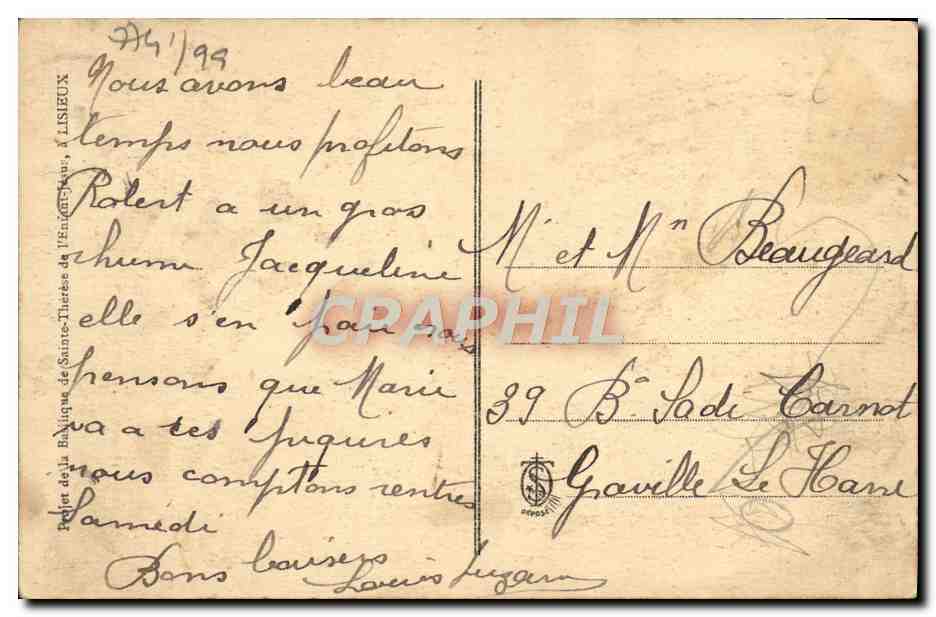 774'/99
Nous avons beau
temps nous profitons
Robert a un gros
rhume Jacqueline
elle s'en pour nous
pensons que Marie
va a ces piqures
nous comptons rentrer
Samedi
Bons baisers
Louis
Mr et Mn Beaugeard
39 Bd Sadi Carnot
Graville Le Havre
Projet de la Basilique de Sainte-Thérèse de l'Enfant-Jésus, à LISIEUX
DÉPOSÉ
CRAPHIL